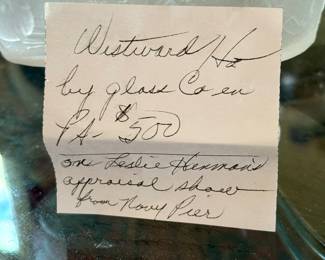 Westward Ho
by glass Co in
PA - $500
on Leslie Hinman's
appraisal show
from Navy Pier